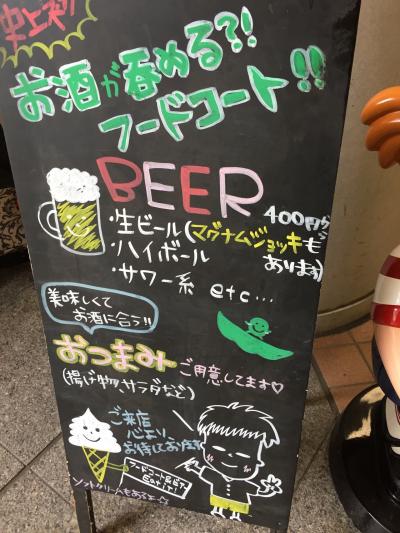 史上初
お酒が呑める?!
フードコート!!
BEER
400円から
・生ビール(マグナムジョッキも
あります)
・ハイボール
・サワー系 etc…
美味しくて
お酒に合う!!
おつまみ ご用意してます♡
(揚げ物、サラダなど)
ご来店
心より
お待しております
フードコート&ビアー
Eat it!
ソフトクリームもあるよ☆